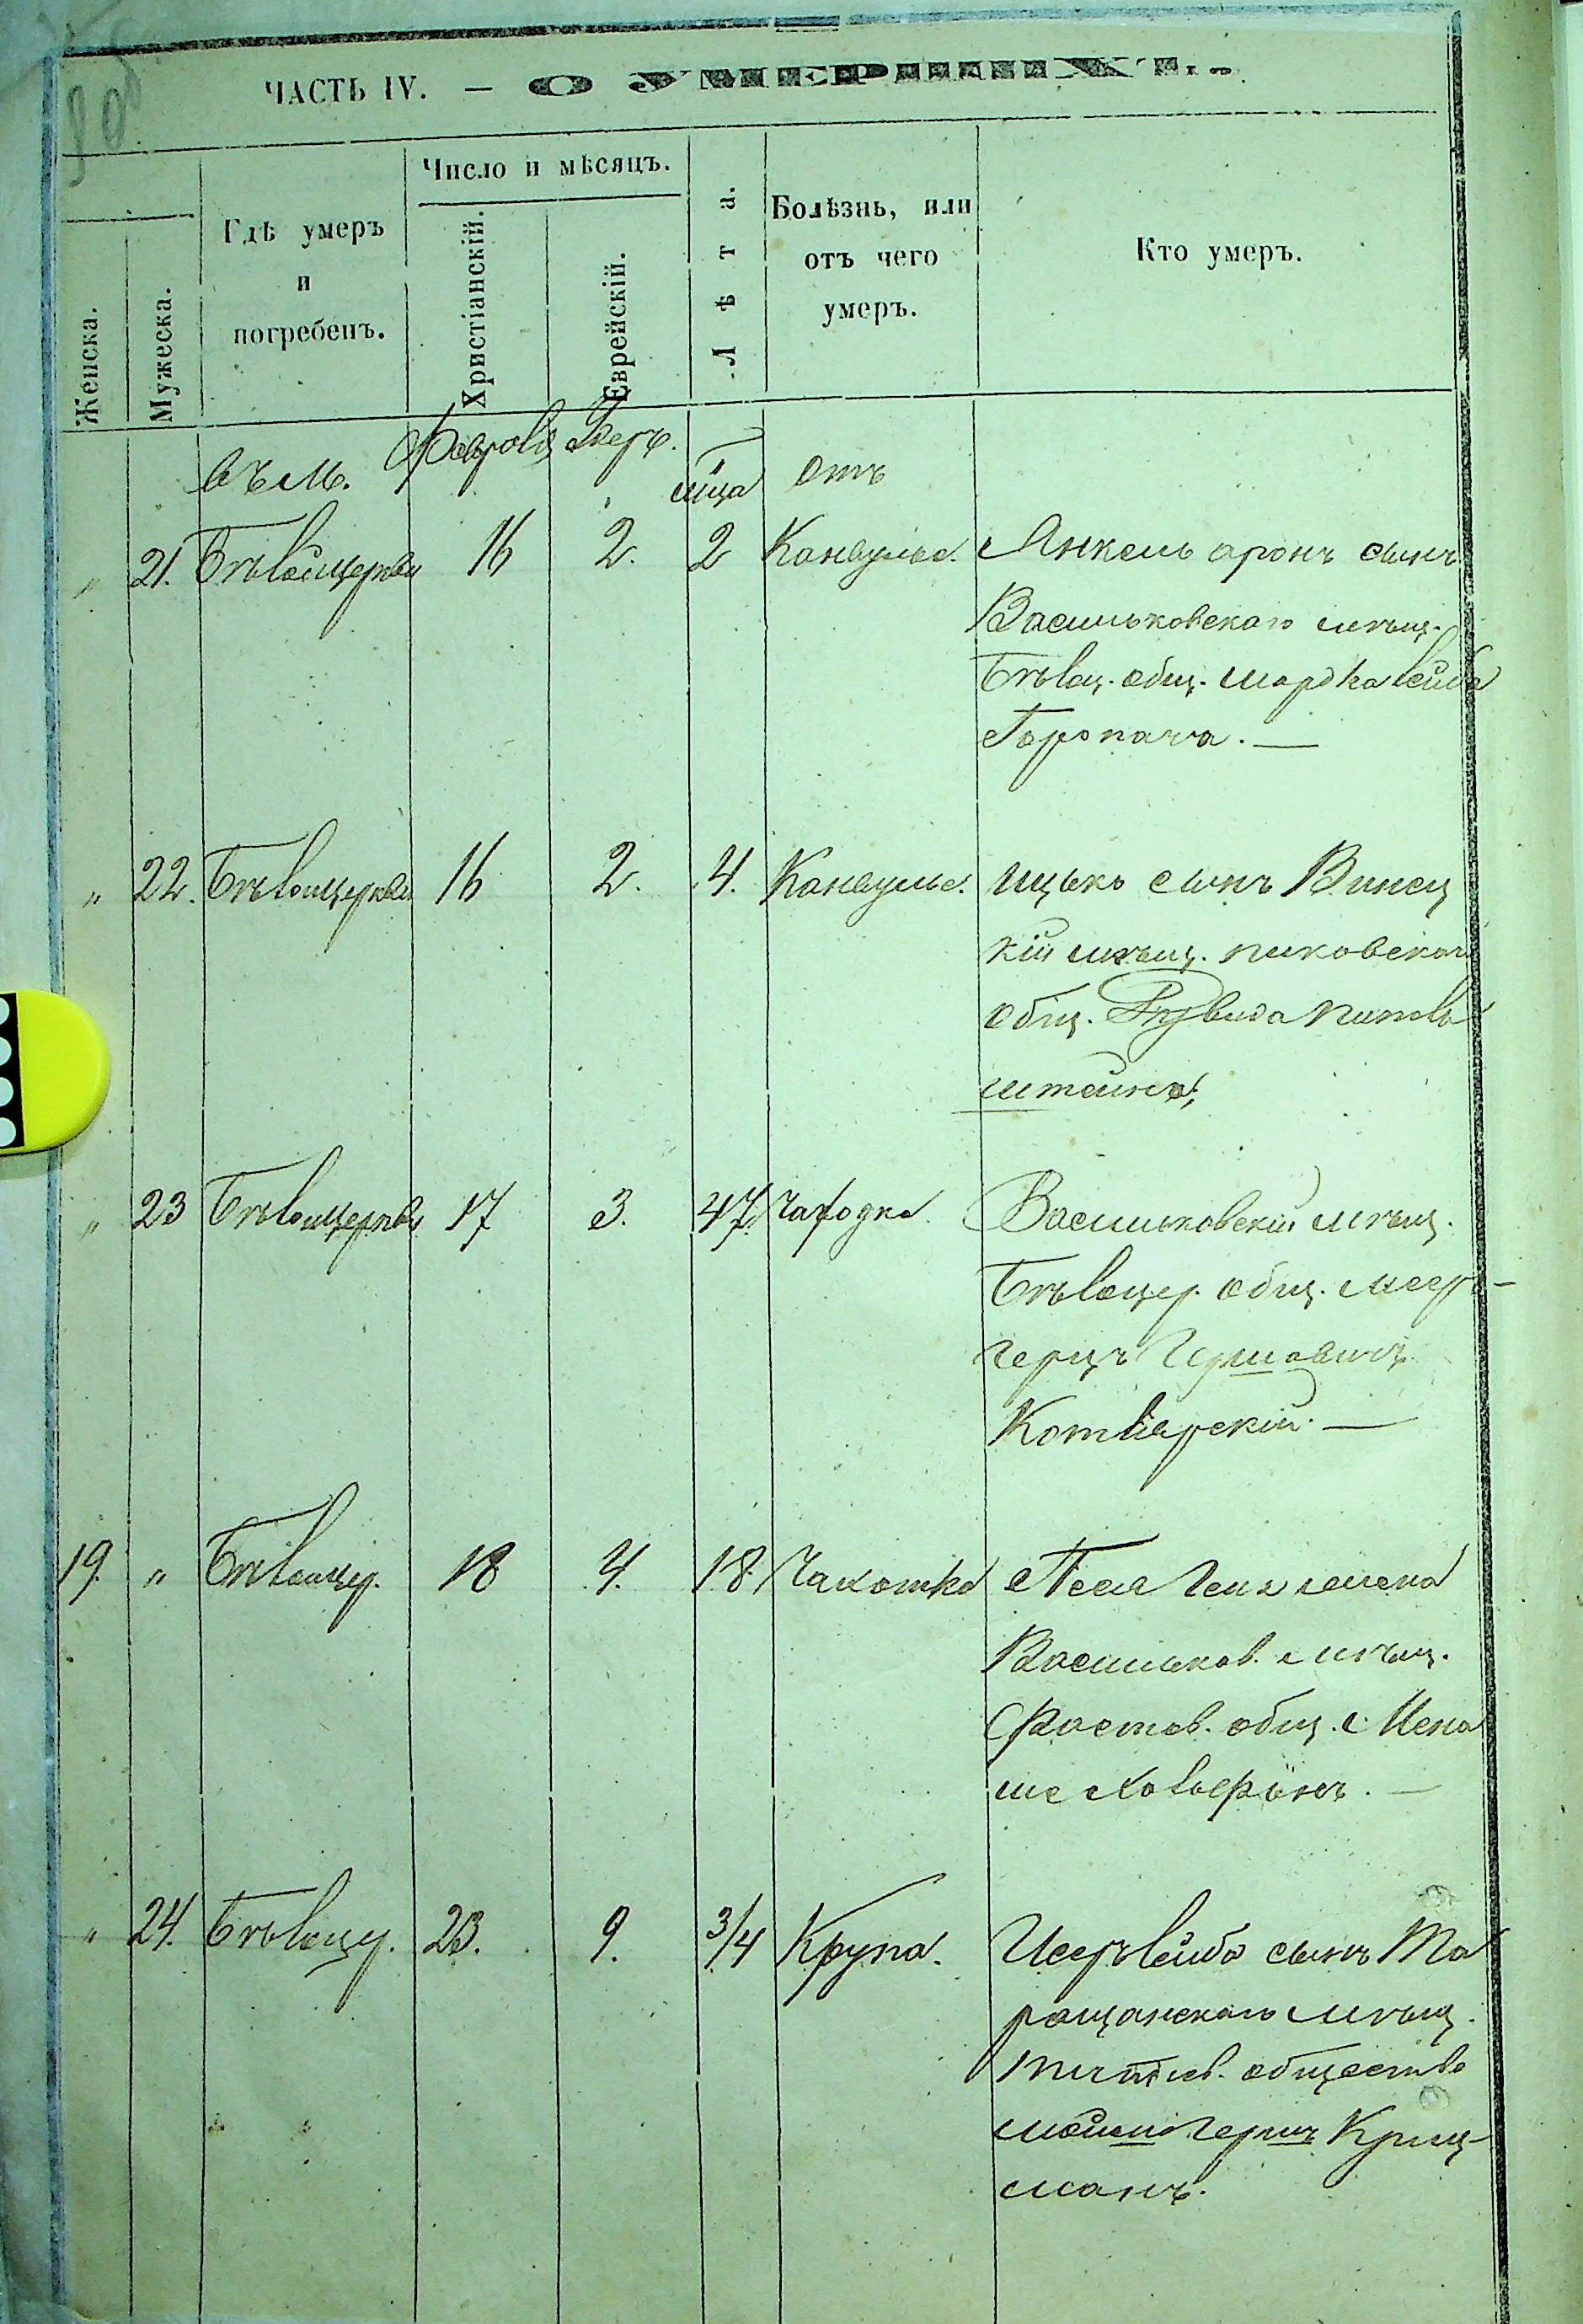 ЧАСТЬ IV. — О УМЕРШИХЪ.
Женска.
Мужеска.
Гдѣ умеръ
и
погребенъ.
Число и мѣсяцъ.
Христіанскій.
Еврейскій.
Лѣта.
Болѣзнь, или
отъ чего
умеръ.
Кто умеръ.
въ м. Февраля Адеръ. м͠ца отъ
„ 21. Бѣлойцеркви 16 2. 2 Канвульс. Янкель аронъ сынъ
Васильковскаго мѣщ.
Бѣлоц. общ. мордка лейба
Горопача. —
„ 22. Бѣлоицеркви 16 2. 4. Канвульс. ицько сынъ Винец
кій мѣщ. пиковскаго
общ.
штейна,
„ 23 Бѣлоицеркви 17 3. 47. Чаходка. Васильковскій мѣщ.
Бѣлоцер. общ. меер-
герцъ Гершовичъ
Котлярскій. —
19. „ Бѣлоицер. 18 4. 18. Чахотка Песя жена
Васильков. мѣщ.
Фастов. общ. Мена
ше
„ 24. Бѣлоцер. 23. 9. 3/4 Крупа. Исеръ лейба сынъ Та
ращанскаго мѣщ.
общества
Герш Криц-
манъ.